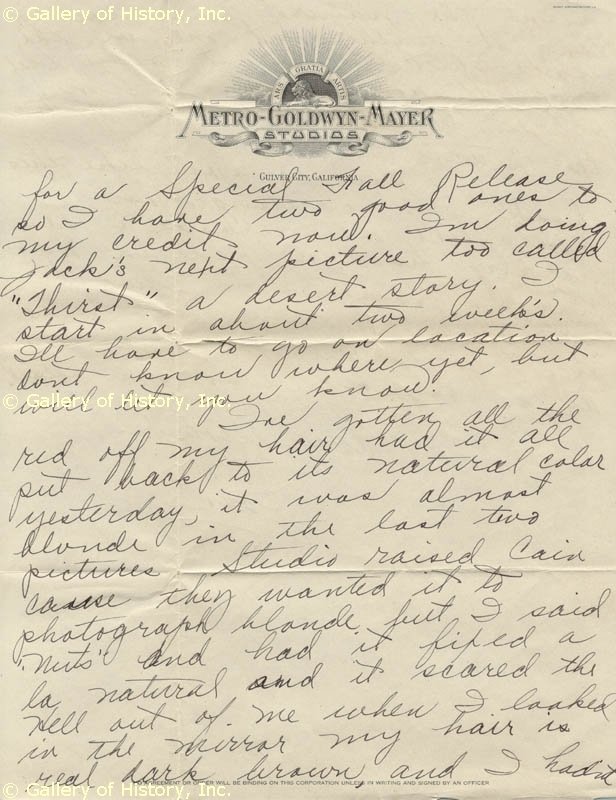 © Gallery of History, Inc.
ARS GRATIA ARTIS
METRO-GOLDWYN-MAYER
STUDIOS
CULVER CITY, CALIFORNIA
for a Special Fall Release
so I have two good ones to
my credit now. I'm doing
Jack's next picture too called
"Thirst" a desert story. I
start in about two week's.
I'll have to go on location
dont know where yet, but
will let you know.
© Gallery of History, Inc.
I've gotten all the
red off my hair had it all
put back to its natural color
yesterday, it was almost
blonde in the last two
pictures Studio raised Cain
cause they wanted it to
photograph blonde but I said
"Nuts" and had it fixed a
la natural and it scared the
Hell out of me when I looked
in the mirror my hair is
real dark brown and I hadn't
NO AGREEMENT OR ORDER WILL BE BINDING ON THIS CORPORATION UNLESS IN WRITING AND SIGNED BY AN OFFICER
© Gallery of History, Inc.